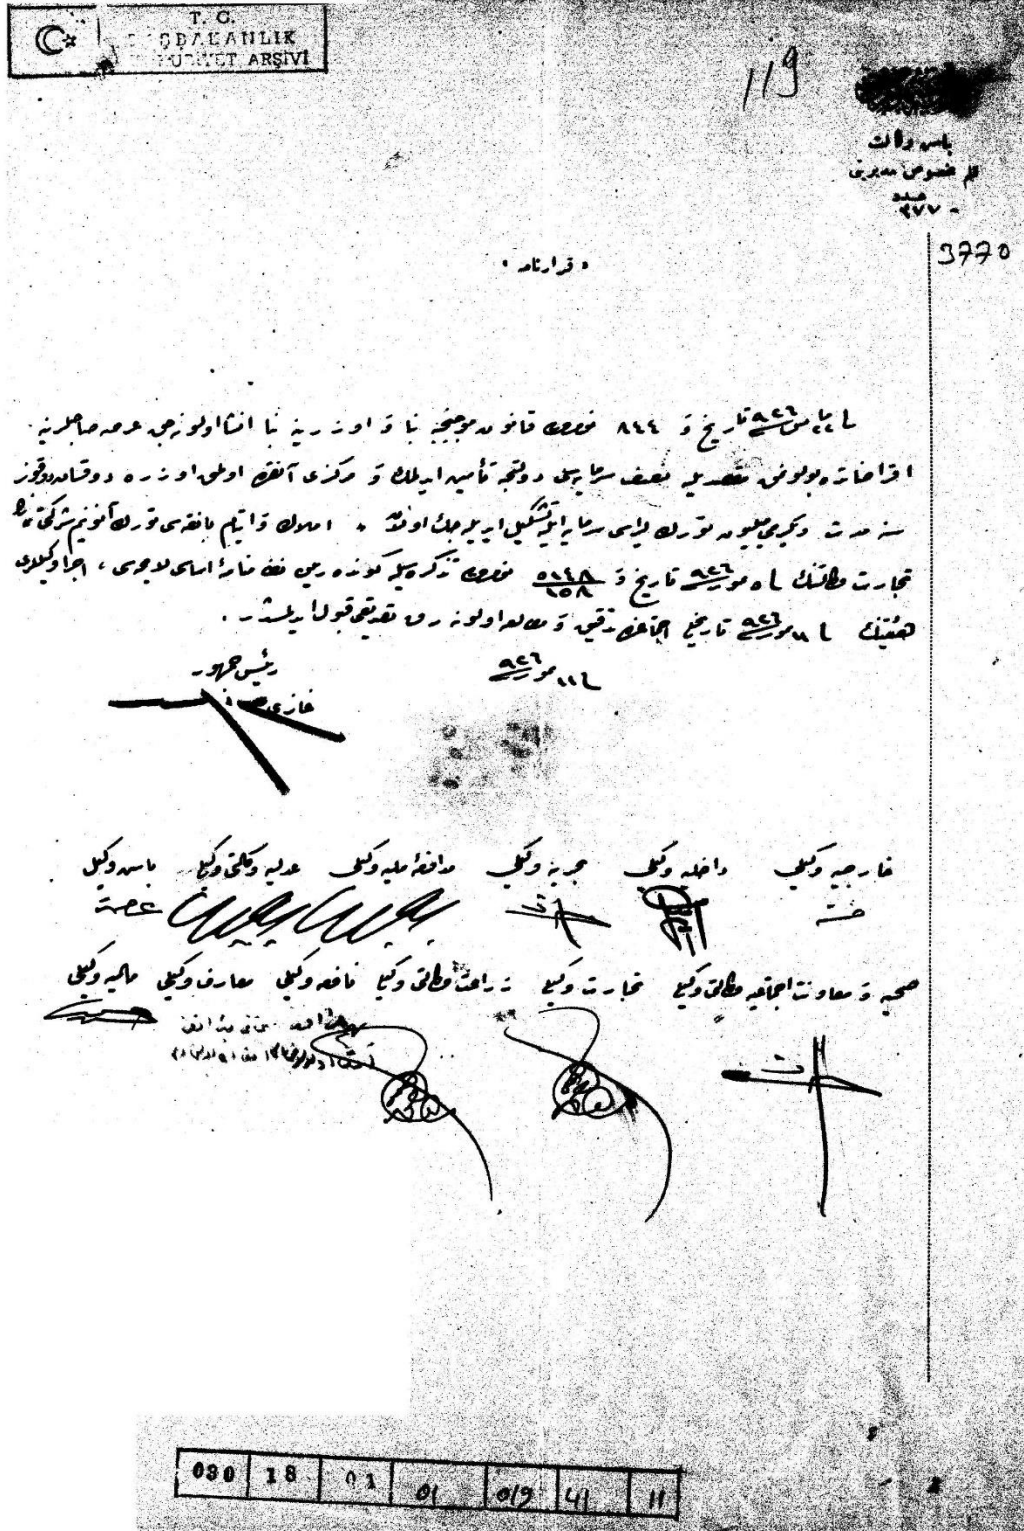 T. C.
BAŞBAKANLIK
CUMHURİYET ARŞİVİ
119
باش وكالت
قلم مخصوص مديريتى
عدد
٣٧٧٠
3770
« قرارنامه »
٢٢ مايس ٩٢٦ تاريخ و ٨٤٤ نومرولى قانون موجبنجه بنا و اوزرينه بنا انشا اولونه جق عرصه صاحلرينه
اقراضاتده بولونمق مقصديله نصف سرمايه سى دولتجه تأمين ايديلمك و مركزى آنقره اولمق اوزره دوقسان دوقوز
سنه مدت و يكرمى ميليون تورك ليراسى سرمايه ايله تشكيل ايديله جك اولان « املاك و ايتام بانقه سى تورك آنونيم شركتى »
تجارت وكالتنك تموز ٩٢٦ تاريخ و نومرولى تذكره سيله كوندريلن نظامنامهٔ اساسى لايحه سى ، اجرا وكيللرى
هيئتنك ١١ تموز ٩٢٦ تاريخلى اجتماعنده تدقيق و مطالعه اولونه رق تصديقى قبول ايديلمشدر .
١١ تموز ٩٢٦
رئيس جمهور
غازى
باش وكيل
عدليه وكالتى وكيلى
مدافعهٔ مليه وكيلى
بحريه وكيلى
داخليه وكيلى
خارجيه وكيلى
عصمت
خسته
ماليه وكيلى
معارف وكيلى
نافعه وكيلى
زراعت وكالتى وكيلى
تجارت وكيلى
صحيه و معاونت اجتماعيه وكالتى وكيلى
030 18 01 01 019 41 11